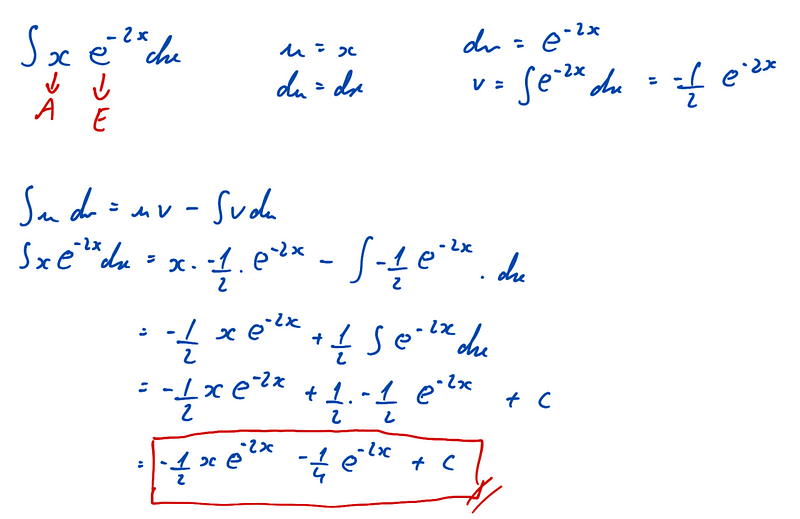 ∫ x e^{-2x} dx    u = x    dv = e^{-2x}
A    E    du = dx    v = ∫ e^{-2x} dx = -1/2 e^{-2x}
∫ u dv = u v - ∫ v du
∫ x e^{-2x} dx = x · -1/2 · e^{-2x} - ∫ -1/2 e^{-2x} · dx
= -1/2 x e^{-2x} + 1/2 ∫ e^{-2x} dx
= -1/2 x e^{-2x} + 1/2 · -1/2 e^{-2x} + C
= -1/2 x e^{-2x} -1/4 e^{-2x} + C